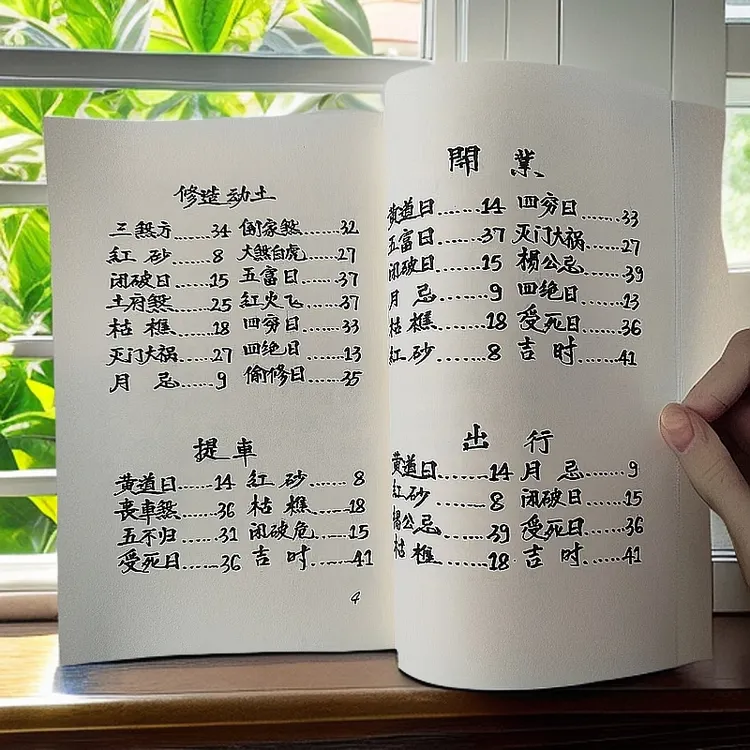 修造动土
三煞方……34 倒家煞……32
紅砂……8 大煞白虎……27
闭破日……15 五富日……37
土府煞……25 紅火飞……37
枯樵……18 四穷日……33
灭门大祸……27 四绝日……13
月忌……9 偷修日……35
提車
黄道日……14 紅砂……8
丧車煞……36 枯樵……18
五不归……31 闭破危……15
受死日……36 吉时……41
4
開業
黄道日……14 四穷日……33
五富日……37 灭门大祸……27
闭破日……15 楊公忌……39
月忌……9 四绝日……13
枯樵……18 受死日……36
紅砂……8 吉时……41
出行
黄道日……14 月忌……9
紅砂……8 闭破日……15
楊公忌……39 受死日……36
枯樵……18 吉时……41